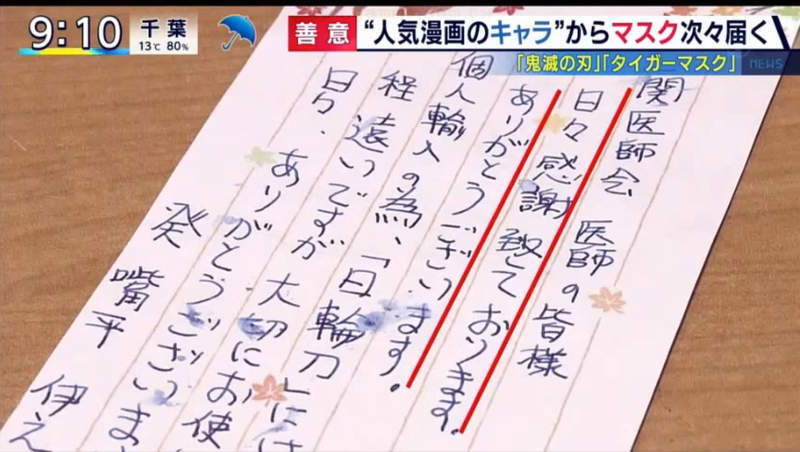 9:10
千葉
13℃ 80%
善意
“人気漫画のキャラ”からマスク次々届く
「鬼滅の刃」「タイガーマスク」
NEWS
関医師会 医師の皆様
日々感謝致しております。
ありがとうございます。
個人輸入の為、「日輪刀」には
程遠いですが 大切にお使
日々、ありがとうございま
発 嘴平 伊